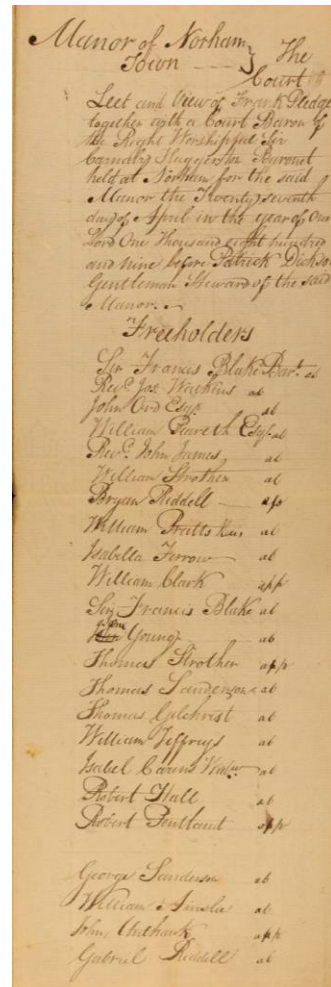 Manor of Norham
Town } The
Court
Leet and View of Frank Pledge
together with a Court Baron of
the Right Worshipful Sir
Carnaby Haggerston Baronet
held at Norham for the said
Manor the Twenty seventh
day of April in the year of Our
Lord One Thousand eight hundred
and nine before Patrick Dickson
Gentleman Steward of the said
Manor.
Freeholders
Sir Francis Blake Bart. ab
Revd. Jos. Watkins ab
John Ord Esqr. ab
William Peareth Esqr. ab
Revd. John James ab
William Strother ab
Bryan Riddell app
William Pratts heir ab
Isabella Ferrow ab
William Clark app
Sir Francis Blake ab
Young ab
Thomas Strother app
Thomas Sanderson ab
Thomas Gilchrist ab
William Jeffreys ab
Isabel Cairns Widw. ab
Robert Hall ab
Robert Pentland app
George Sanderson ab
William Ainslie ab
John app
Gabriel Riddell ab